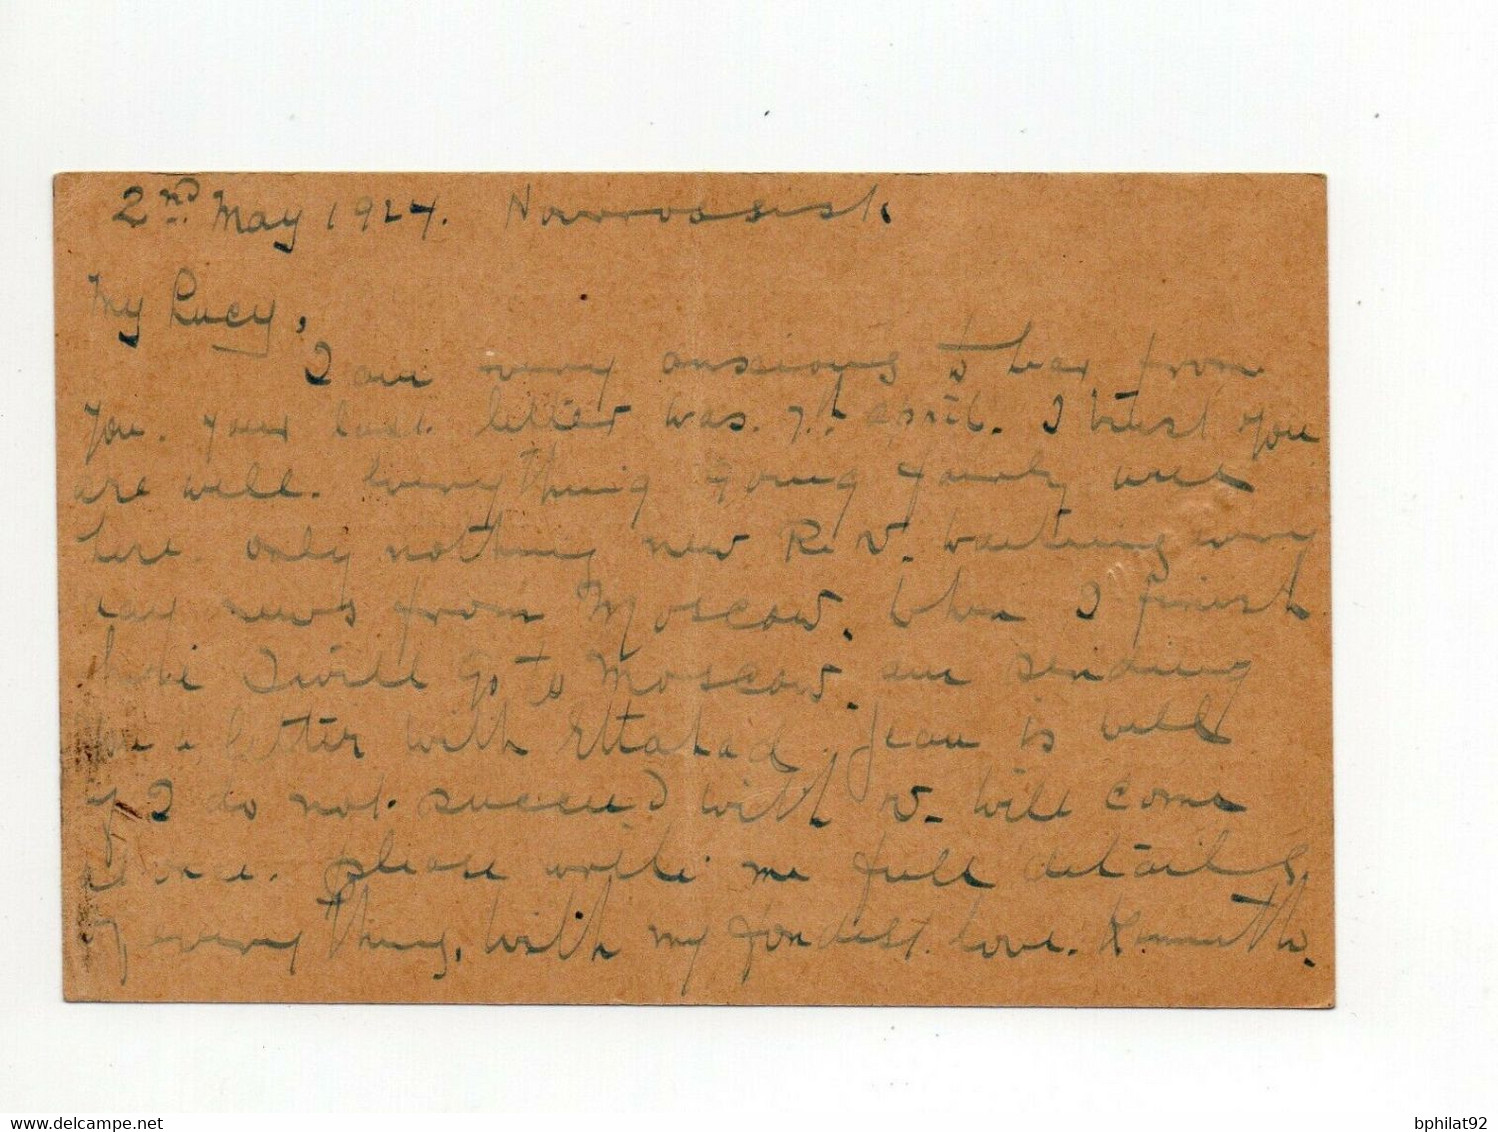 2nd May 1924. Novorossisk
My Lucy,
I am very anxious to hear from
you. your last letter was 7th april. I trust you
are well. Everything going fairly well
here only nothing new Re V. waiting every
day news from Moscow. When I finish
here I will go to Moscow. am sending
you a letter with Ettahad. Jean is well
if I do not succeed with V. will come
please write me full details
of everything, with my fondest love. Kenneth.
bphilat92